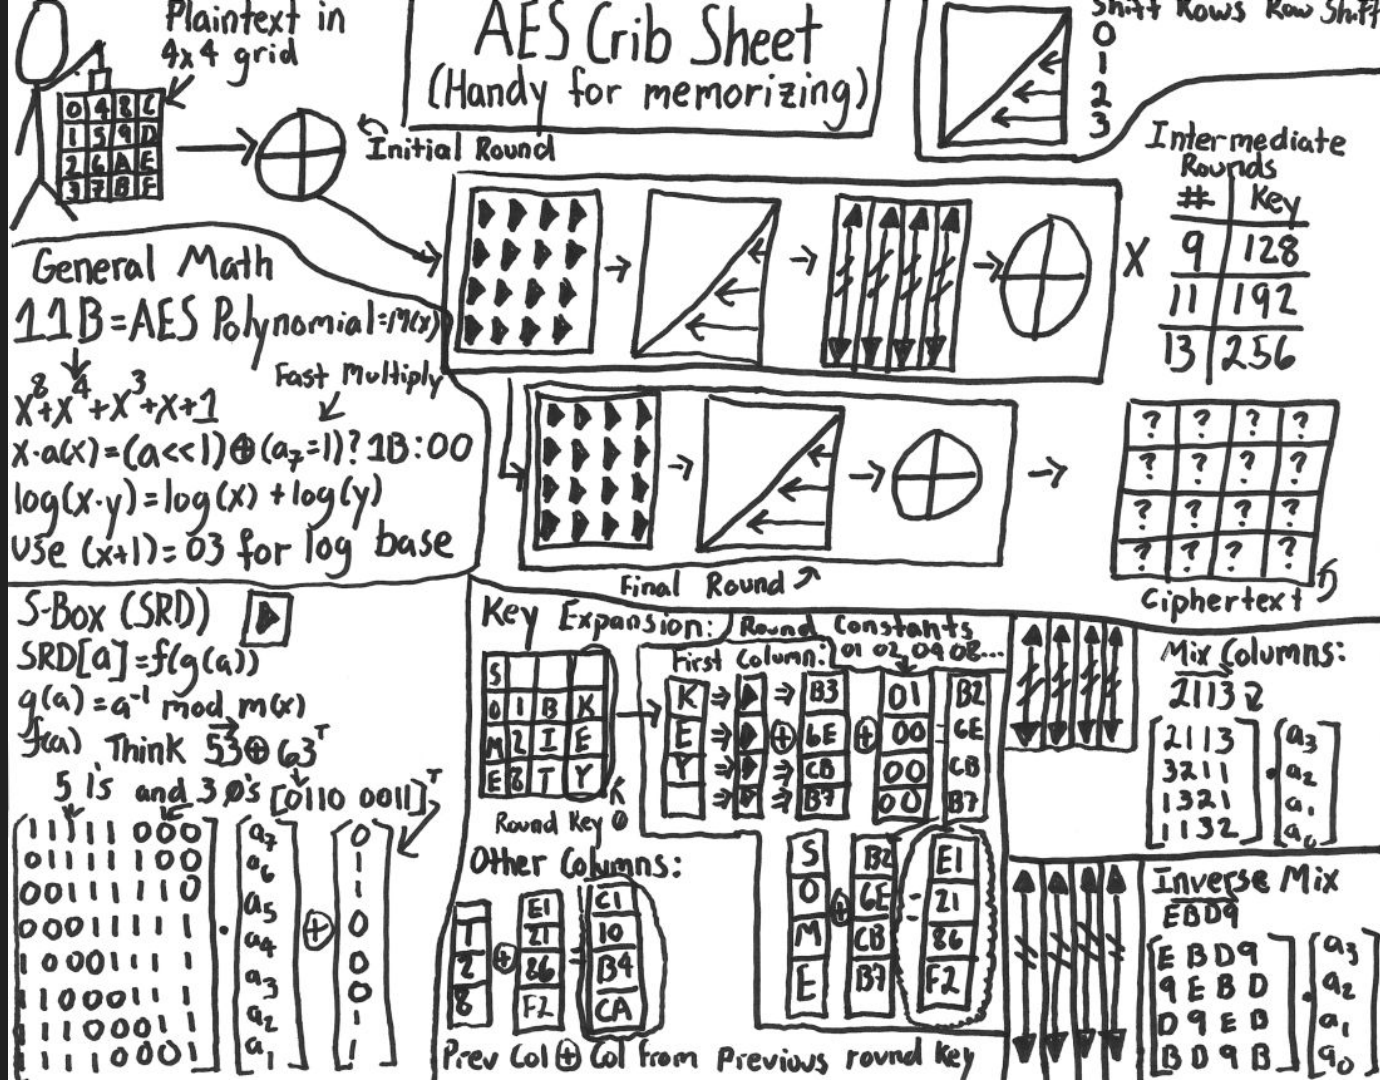 Plaintext in
4x4 grid
0 4 8 C
1 5 9 D
2 6 A E
3 7 B F
AES Crib Sheet
(Handy for memorizing)
Shift Rows Row Shift
0
1
2
3
Initial Round
Intermediate
Rounds
# Key
9 128
11 192
13 256
X
General Math
11B=AES Polynomial=M(x)
x⁸+x⁴+x³+x+1
Fast Multiply
x·a(x)=(a<<1)⊕(a₇=1)?1B:00
log(x·y)=log(x)+log(y)
use (x+1)=03 for log base
Final Round
? ? ? ?
? ? ? ?
? ? ? ?
? ? ? ?
Ciphertext
S-Box (SRD)
SRD[a]=f(g(a))
g(a)=a⁻¹ mod m(x)
f(a) Think 53⊕63ᵀ
5 1's and 3 0's [0110 0011]ᵀ
1 1 1 1 1 0 0 0 a₇ 0
0 1 1 1 1 1 0 0 a₆ 1
0 0 1 1 1 1 1 0 a₅ 1
0 0 0 1 1 1 1 1 · a₄ ⊕ 0
1 0 0 0 1 1 1 1 a₃ 0
1 1 0 0 0 1 1 1 a₂ 0
1 1 1 0 0 0 1 1 a₁ 1
1 1 1 1 0 0 0 1 1
Key Expansion:
Round Constants
01 02 04 08...
First Column:
S
O 1 B K
M 2 I E
E 8 T Y
Round Key 0
K B3 01 B2
E ⊕ 6E ⊕ 00 = 6E
Y CB 00 CB
B7 00 B7
S B2 E1
O ⊕ 6E = 21
M CB 86
E B7 F2
Other Columns:
E1 C1
1 21 10
2 ⊕ 86 = B4
8 F2 CA
Prev Col ⊕ Col from Previous round key
Mix Columns:
2113
2113 a₃
3211 · a₂
1321 a₁
1132 a₀
Inverse Mix
EBD9
E B D 9 a₃
9 E B D · a₂
D 9 E B a₁
B D 9 B a₀